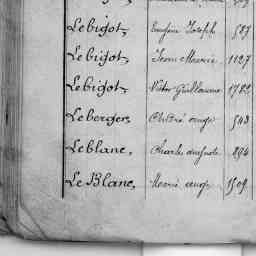 Lebigot, Eugène Joseph 527
Lebigot, Jean Marie 1127
Lebigot, Victor Guillaume 1782
Leberger, 543
Leblanc, Charles 894
Le Blanc, Marie 1509